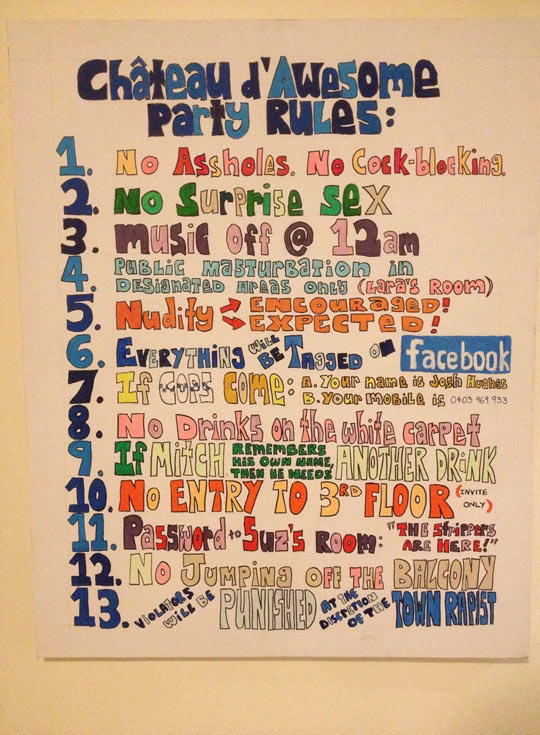 Château d'Awesome
Party Rules:
1. No Assholes. No Cock-blocking.
2. No Surprise Sex
3. music off @ 12am
4. Public Masturbation in
Designated Areas Only (Lara's Room)
5. Nudity → Encouraged!
→ Expected!
6. Everything will be Tagged on facebook
7. If Cops Come: A. Your name is Josh Hughes
B. Your mobile is 0403 969 933
8. No Drinks on the white carpet
9. If Mitch Remembers
His own name,
Then he needs Another Drink
10. No Entry to 3rd Floor (Invite
Only)
11. Password to Suz's Room: "The Strippers
Are Here!"
12. No Jumping off the Balcony
13. Violators
will be Punished at the
discretion
of the Town Rapist